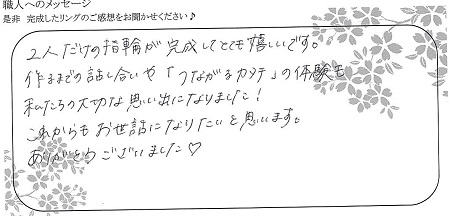 職人へのメッセージ
是非 完成したリングのご感想をお聞かせください♪
2人だけの指輪が完成してとても嬉しいです。
作るまでの話し合いや「つながるカタチ」の体験も
私たちの大切な思い出になりました！
これからもお世話になりたいと思います。
ありがとうございました♡